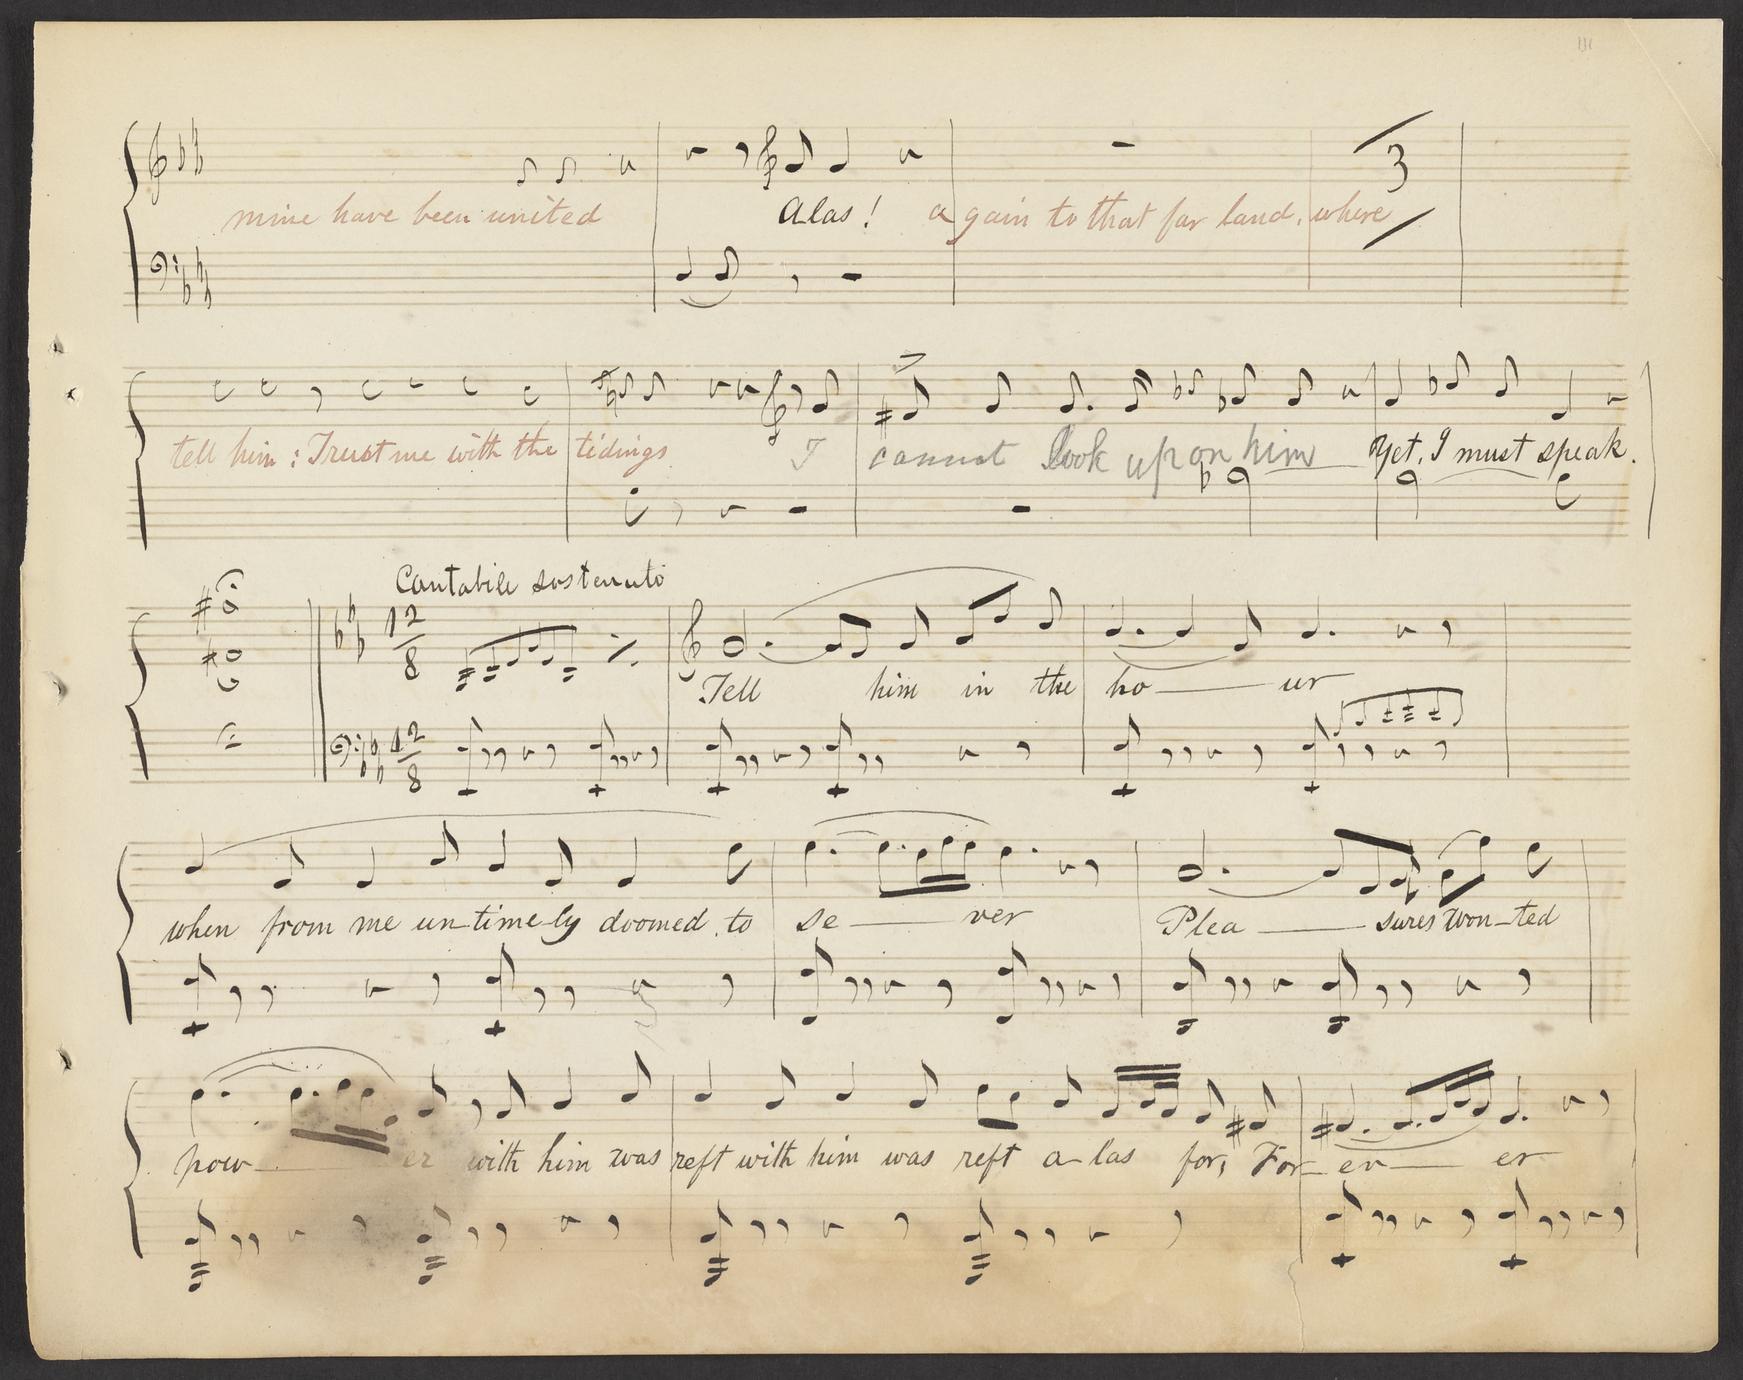 mine have been united Alas! a gain to that far land, where 3
tell him: Trust me with the tidings I cannot look upon him Yet, I must speak.
Cantabile sostenuto
12 8
Tell him in the ho— ur
12 8
when from me un-time-ly doomed to se— ver Plea— sures won-ted
pow— er with him was reft with him was reft a-las for, For— ev— er